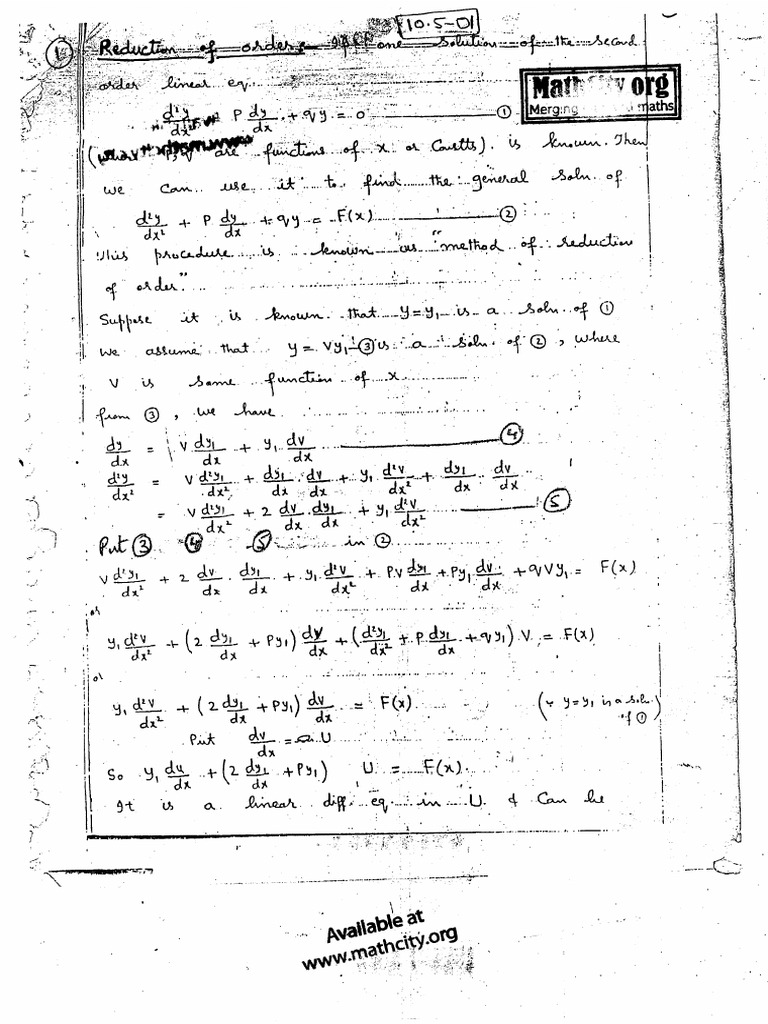 10.5-01
① Reduction of order:- If one solution of the second
order linear eq.
Mathcity.org
Merging maths
d²y/dx² + P dy/dx + qy = 0 ——— ①
(where P, q are functions of x or Constts). is known. Then
we can use it to find the general soln. of
d²y/dx² + P dy/dx + qy = F(x) ——— ②
This procedure is known as "method of reduction
of order."
Suppose it is known that y=y₁ is a soln of ①
we assume that y = Vy₁ -③ is a soln. of ②, where
V is some function of x
from ③, we have
dy/dx = V dy₁/dx + y₁ dv/dx ——— ④
d²y/dx² = V d²y₁/dx² + dy₁/dx . dv/dx + y₁ d²v/dx² + dy₁/dx . dv/dx
= V d²y₁/dx² + 2 dv/dx . dy₁/dx + y₁ d²v/dx² ——— ⑤
Put ③ ④ ⑤ in ②
V d²y₁/dx² + 2 dv/dx . dy₁/dx + y₁ d²v/dx² + PV dy₁/dx + Py₁ dv/dx + qVy₁ = F(x)
or
y₁ d²v/dx² + (2 dy₁/dx + Py₁) dv/dx + (d²y₁/dx² + P dy₁/dx + qy₁) V = F(x)
or
y₁ d²v/dx² + (2 dy₁/dx + Py₁) dv/dx = F(x) (∵ y=y₁ is a soln. of ①)
Put dv/dx = U
So y₁ du/dx + (2 dy₁/dx + Py₁) U = F(x).
It is a linear diff. eq. in U & Can be
Available at
www.mathcity.org